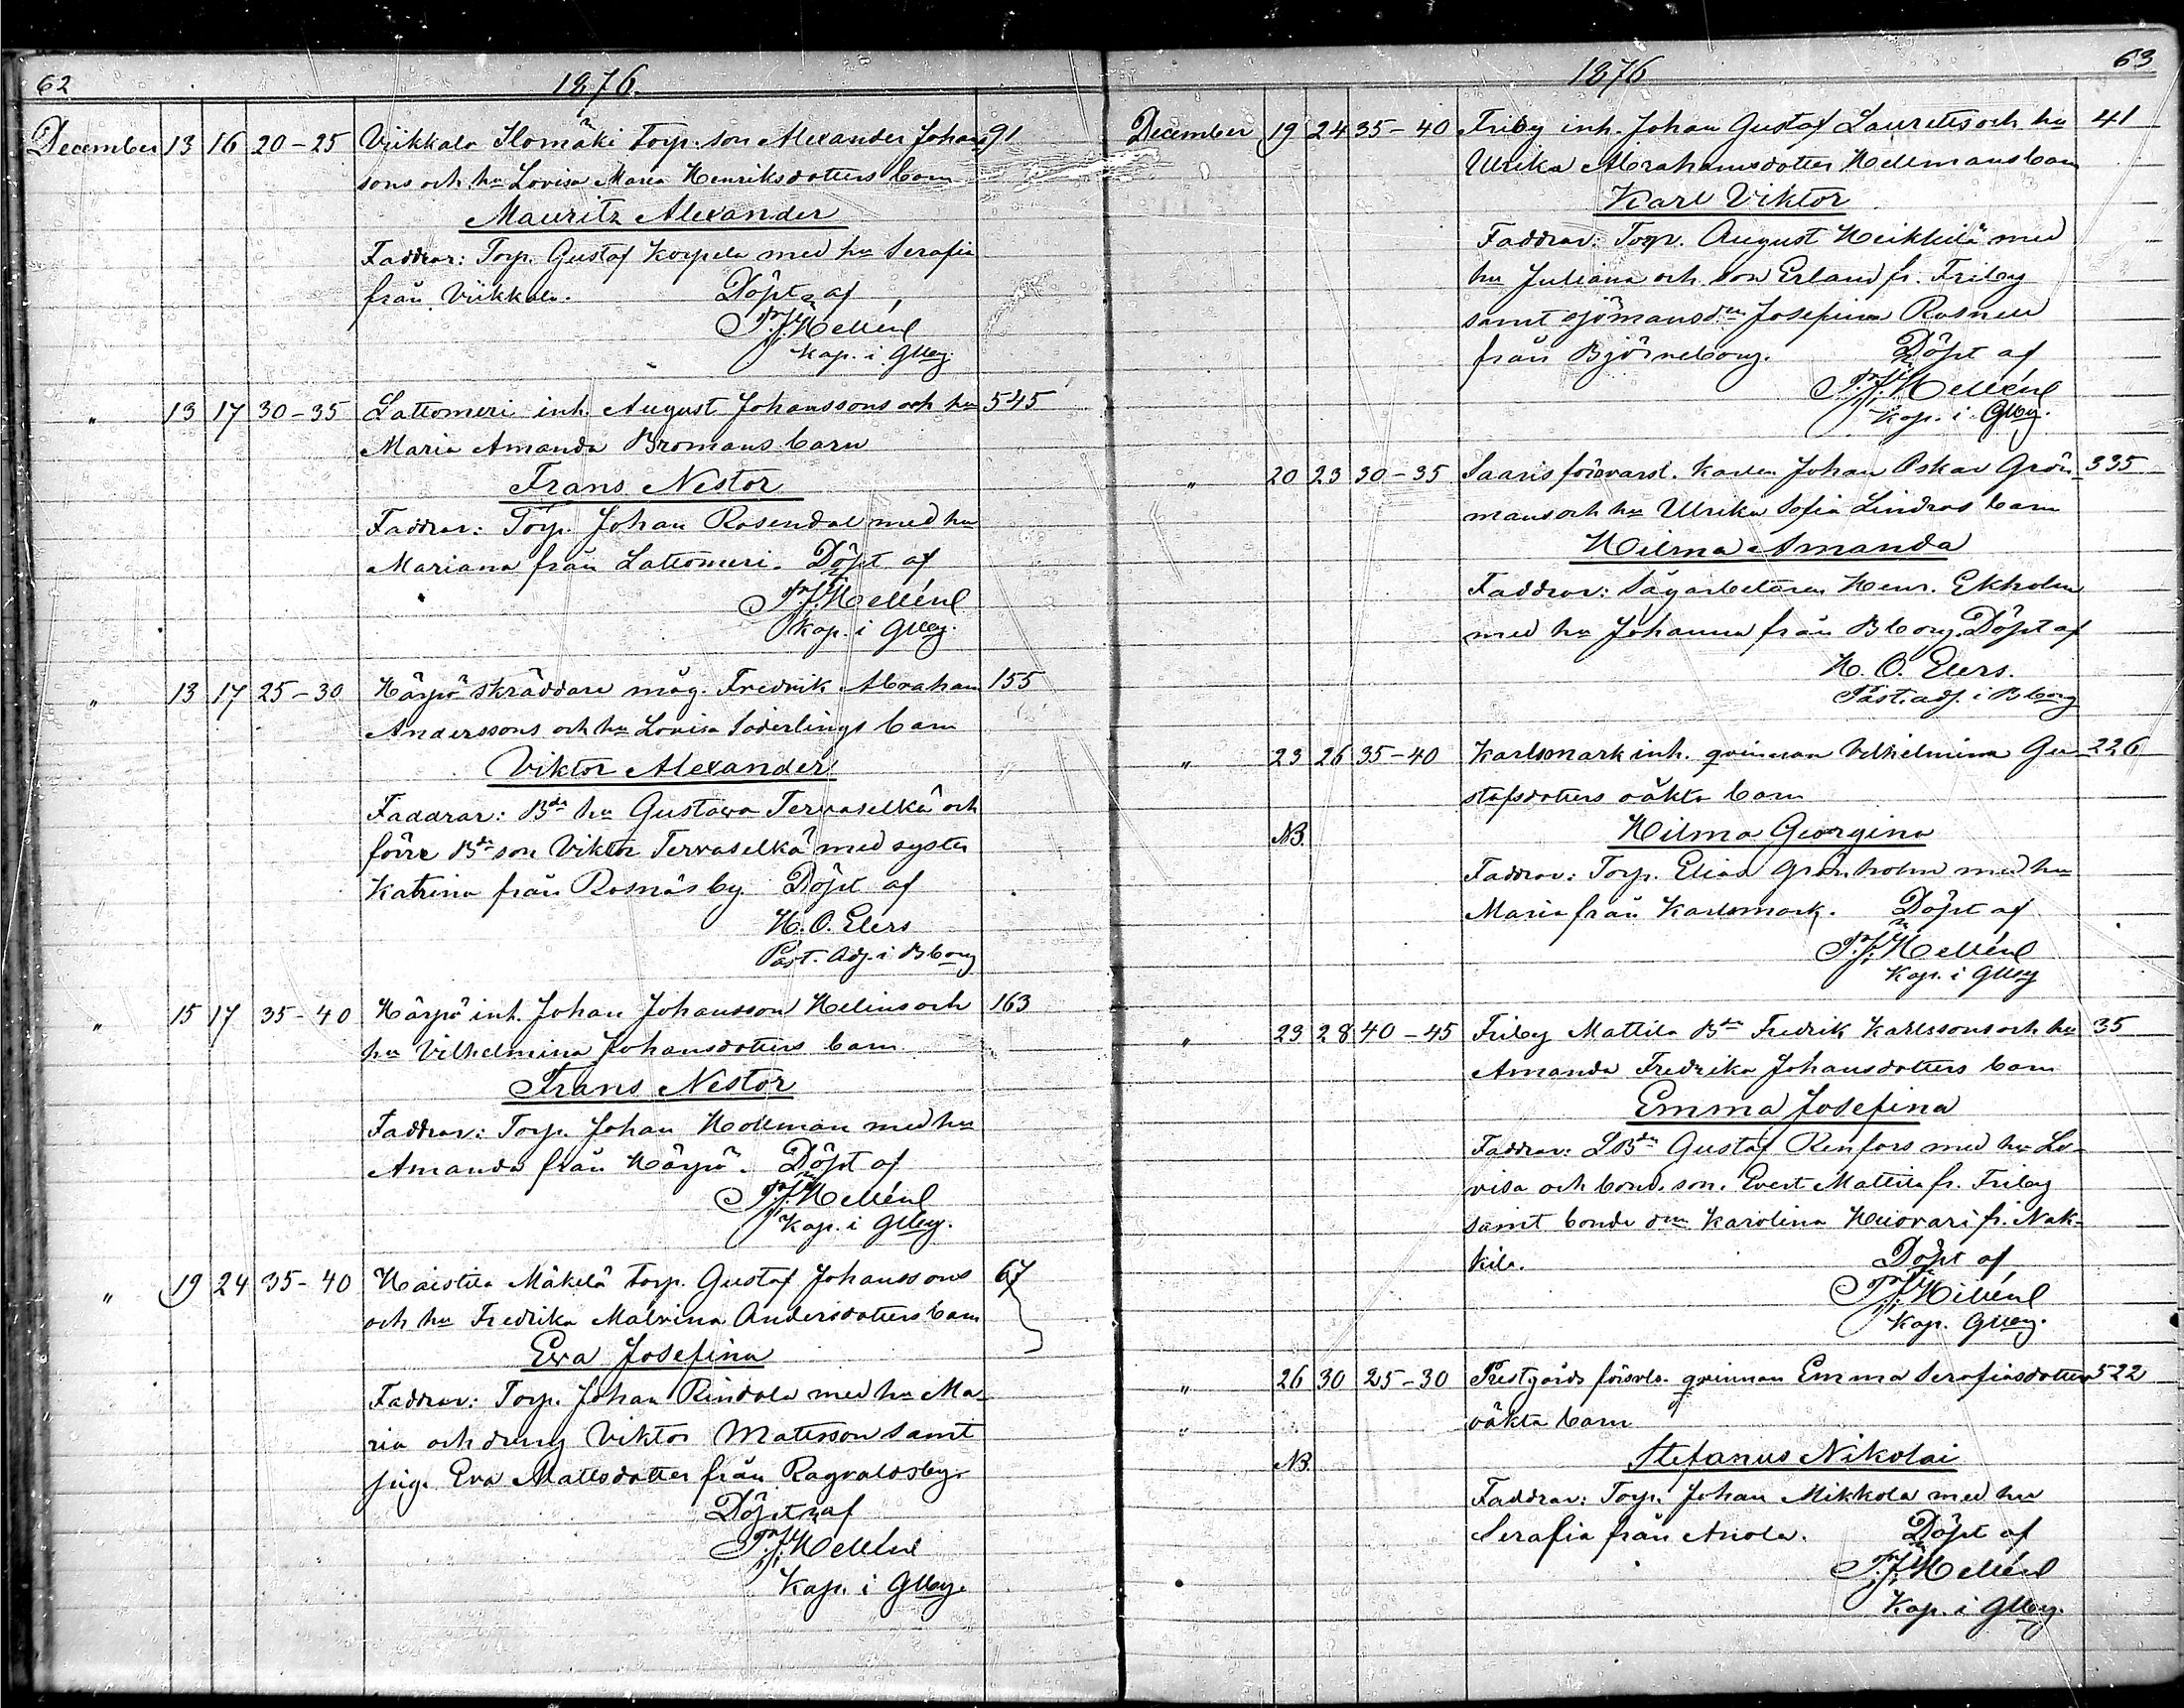 62
1876.
December 13 16 20-25 Viikkala Ilomäki Torp. son Alexander Johans 91
sons och hu Lovisa Maria Henriksdotters barn
Mauritz Alexander
Faddrar: Torp. Gustaf Korpela med hu Serafia
från Viikkala. Döpt af
Hellénl
Kap. i Gllbg.
" 13 17 30-35 Lattomeri inh. August Johanssons och hu 545
Maria Amanda Bromans barn
Frans Nestor
Faddrar: Torp. Johan Rosendal med hu
Mariana från Lattomeri. Döpt af
Hellénl
Kap. i Gllbg.
" 13 17 25-30 Härpö skräddare måg. Fredrik Abraham 155
Anderssons och hu Lovisa Söderlings barn
Viktor Alexander
Faddrar: Bde hu Gustava Tervaselkä och
förre Bde son Viktor Tervaselkä med syster
Katrina från Rosnäs by. Döpt af
H. O. Elers
Past. Adj. i Bborg
" 15 17 35-40 Härpö inh. Johan Johansson Helins och 163
hu Vilhelmina Johansdotters barn
Frans Nestor
Faddrar: Torp. Johan Hollman med hu
Amanda från Härpö. Döpt af
Hellénl
Kap. i Gllbg.
" 19 24 35-40 Haistila Mäkelä Torp. Gustaf Johanssons 67
och hu Fredrika Malvina Andersdotters barn
Eva Josefina
Faddrar: Torp. Johan Rindala med hu Ma-
ria och dreng Viktor Matsson samt
pig. Eva Mattsdotter från Ragvaldsby.
Döpt af
Hellénl
Kap. i Gllbg.
63
1876
December 19 24 35-40 Friby inh. Johan Gustaf Laurells och hu 41
Ulrika Abrahamsdotter Hellmans barn
Karl Viktor
Faddrar: Torp. August Heikkilä med
hu Juliana och son Erland fr. Friby
samt sjömansdn Josefina Rosnell
från Björneborg. Döpt af
Hellénl
Kap. i Gllbg.
" 20 23 30-35 Saaris försvarsl. karlen Johan Oskar Grön- 335
mans och hu Ulrika Sofia Lindros barn
Hilma Amanda
Faddrar: Sågarbetaren Henr. Ekholm
med hu Johanna från Bborg. Döpt af
H. O. Elers.
Past. adj. i Bborg
" 23 26 35-40 Karlsmark inh. qvinnan Vilhelmina Gu- 226
stafsdotters oäkta barn
NB. Hilma Georgina
Faddrar: Torp. Elias Grönholm med hu
Maria från Karlsmark. Döpt af
Hellénl
Kap. i Gllbg
" 23 28 40-45 Friby Mattila Bde Fredrik Karlssons och hu 35
Amanda Fredrika Johansdotters barn
Emma Josefina
Faddrar: LBde Gustaf Renfors med hu Lo-
visa och bond. son. Evert Mattila fr. Friby
samt bonde dn Karolina Huovari fr. Nak-
kila. Döpt af
Hellénl
Kap. Gllbg.
" 26 30 25-30 Prestgårds försvls. qvinnan Emma Serafiasdotters 522
" oäkta barn
NB. Stefanus Nikolai
Faddrar: Torp. Johan Mikkola med hu
Serafia från Anola. Döpt af
Hellénl
Kap. i Gllbg.